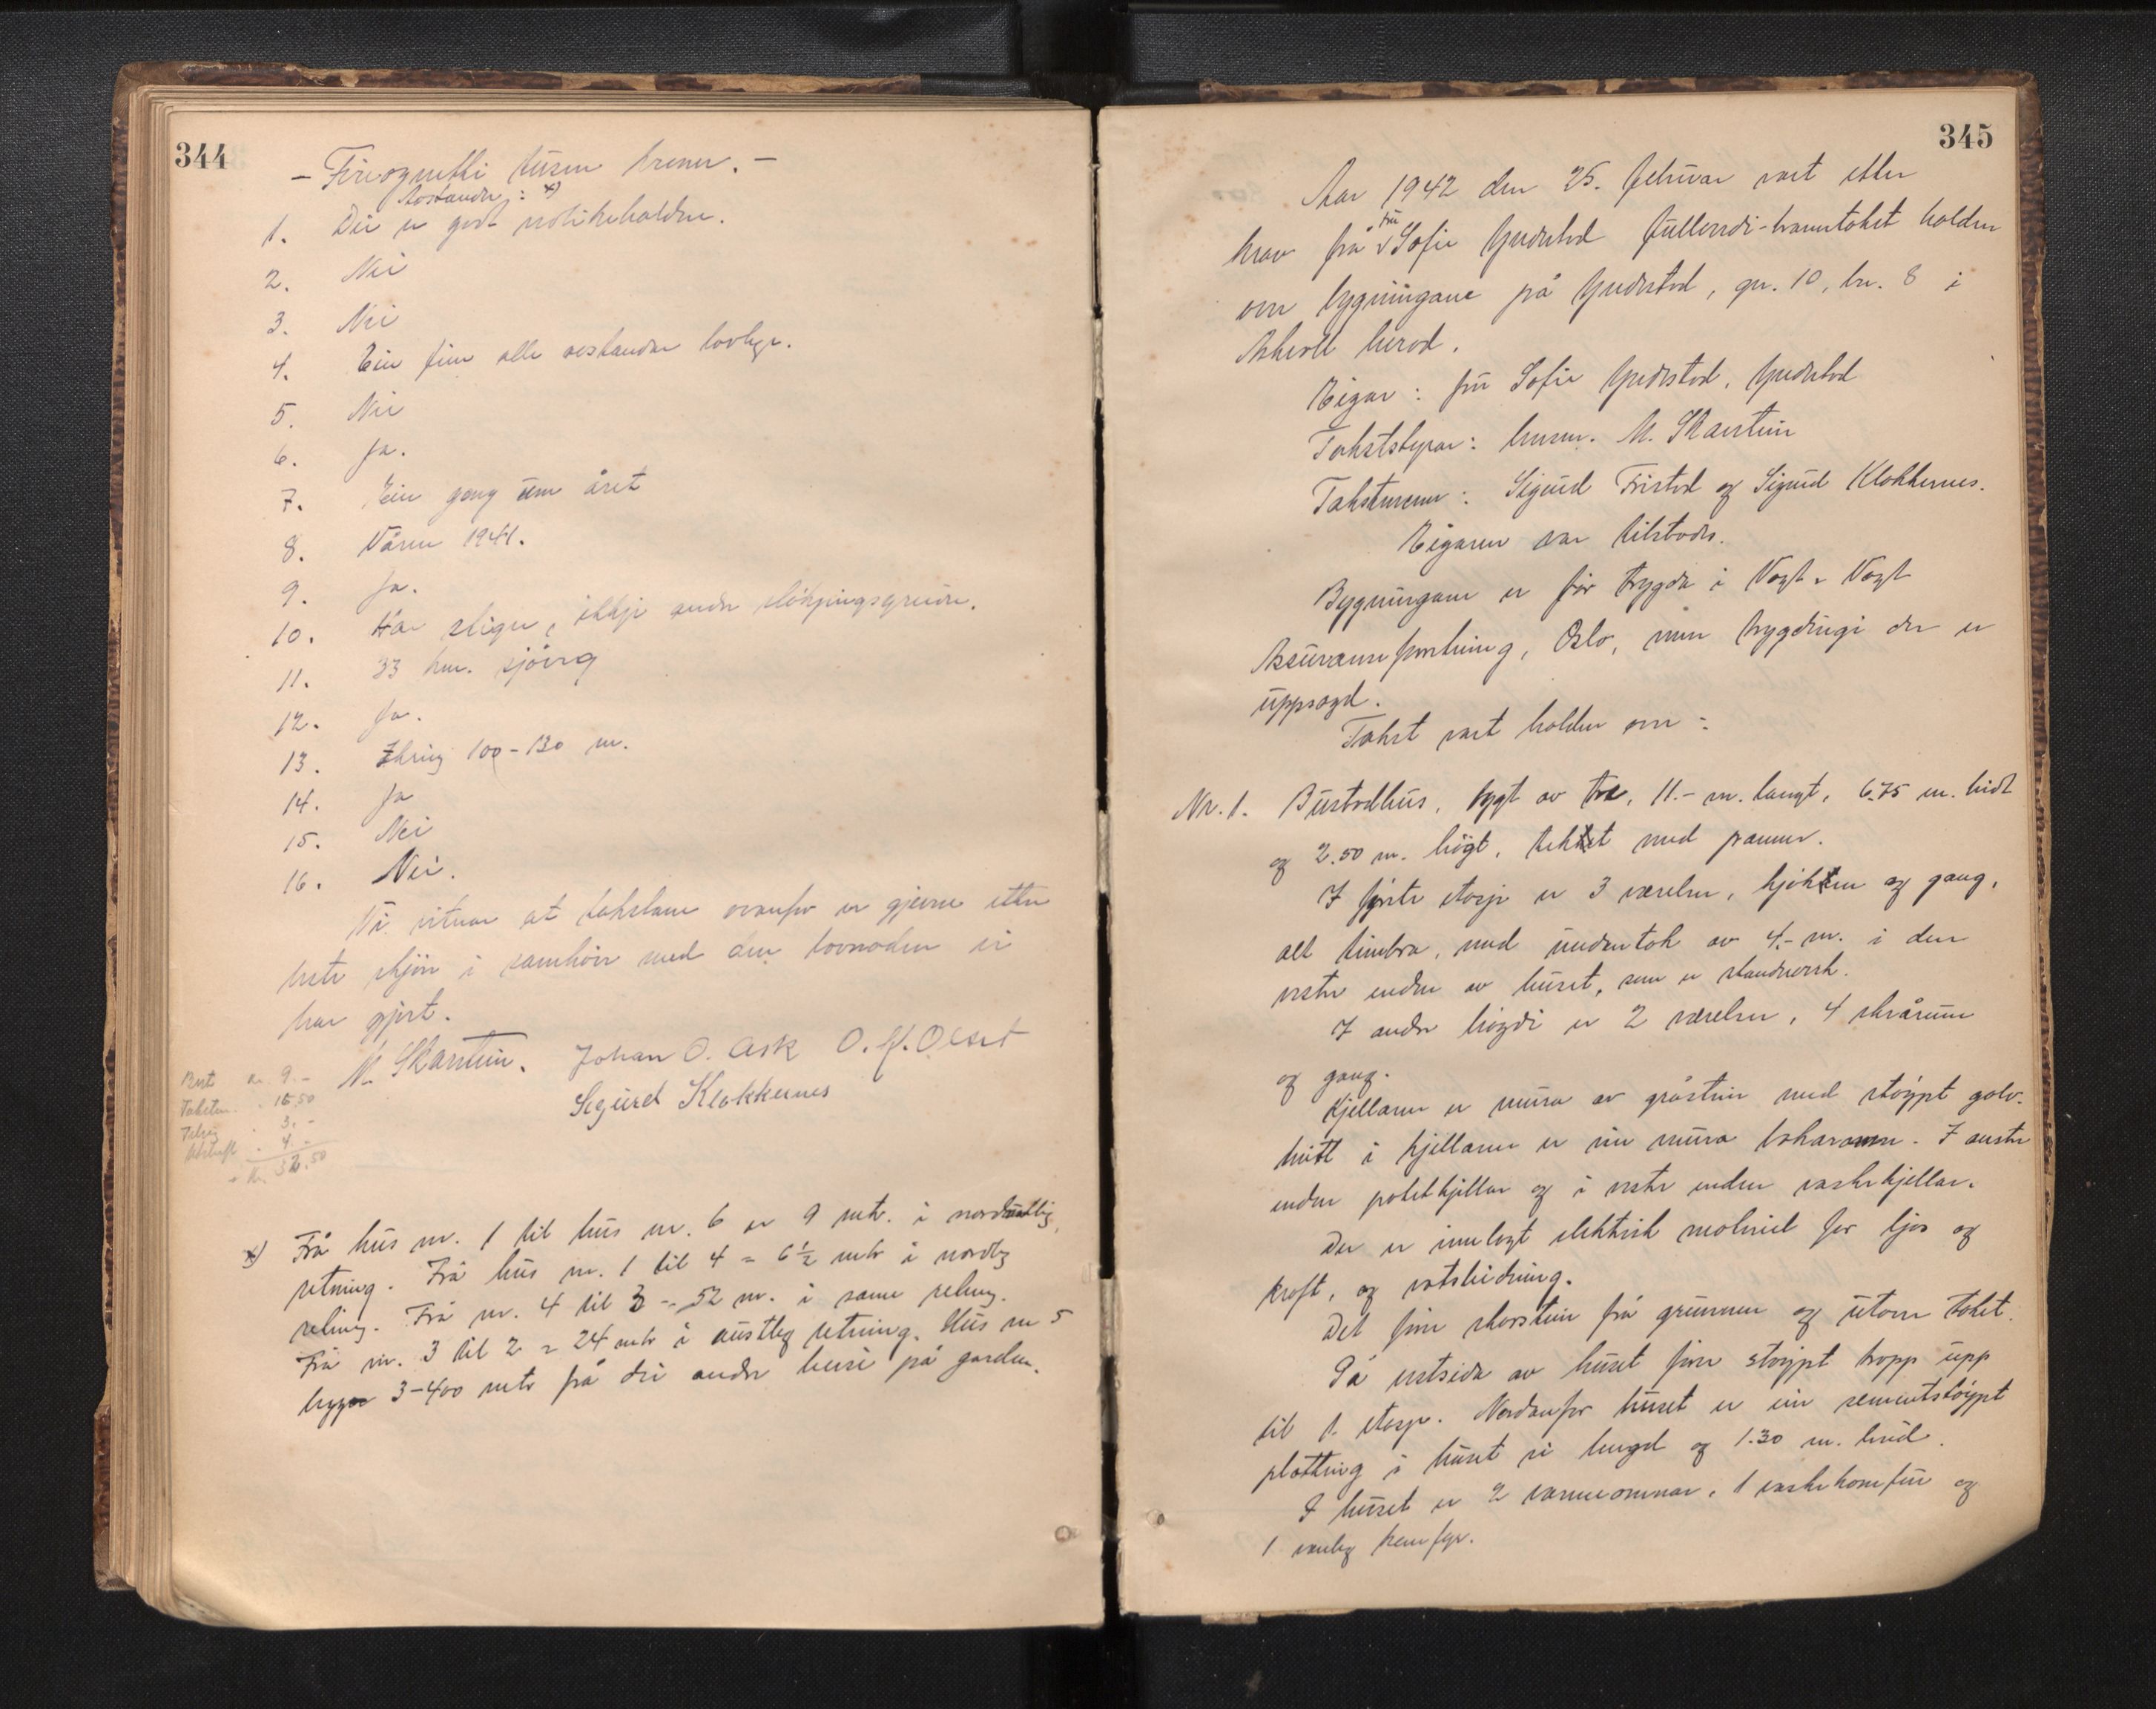 344
- Fireognitti tusen kroner. -
Avstandar : x)
1. Dei er godt vedlikehaldne.
2. Nei
3. Nei
4. Ein finn alle avstandar lovlege.
5. Nei
6. Ja.
7. Ein gong um året
8. Våren 1941.
9. Ja.
10. Har stigar, ikkje andre sløkjingsgreidor.
11. 33 km. sjöveg
12. Ja.
13. Ikring 100-130 m.
14. Ja
15. Nei
16. Nei.
Vi vitnar at takstane ovanfor er gjevne etter
beste skjön i samhöve med den lovnaden vi
har gjort.
M. Skarstein. Johan O. Ask O. K. Olset
Sigurd Klokkernes
Best. kr. 9.-
Takstm. " 16.50
Tilseg " 3.-
Utskrift " 4.-
Kr. 32.50
x) Frå hus nr. 1 til hus nr. 6 er 9 mtr. i nordaustleg
retning. Frå hus nr. 1 til 4 = 6½ mtr i nordleg
retning. Frå nr. 4 til 3 = 52 m. i same retning.
Frå nr. 3 til 2 = 24 mtr i austleg retning. Hus nr 5
ligger 3-400 mtr frå dei andre husi på garden.
345
Aar 1942 den 25. februar vart etter
krav frå fru Sofie Yndestad fullverdi-branntakst halden
over bygningane på Yndestad, gnr. 10, bnr. 8 i
Askvoll herad.
Eigar : fru Sofie Yndestad, Yndestad
Takststyrar: lensm. M. Skarstein
Takstmenn : Sigurd Tristad og Sigurd Klokkernes.
Eigaren var tilstades.
Bygningane er för trygda i Vogt & Vogt
Assuranseforretning, Oslo, men trygdingi der er
uppsagd.
Takst vart halden over :
Nr. 1. Bustadhus, bygt av tre, 11.- m. langt, 6.75 m. breidt
og 2.50 m. högt, tekket med panner.
I fyrste etasje er 3 værelser, kjökken og gang,
alt timbra, med undantak av 4.- m. i den
vestre enden av huset, som er standverk.
I andre högdi er 2 værelser, 4 skrårum
og gang.
Kjellaren er mura av gråstein med stöypt golv.
Midt i kjellaren er ein mura bakaromn. I austre
enden potetkjellar og i vestre enden vaskekjellar.
Der er innlagt elektrisk materiel for ljos og
kraft, og vatsleidning.
Det finn skorstein frå grunnen og utover taket.
På vestsida av huset finn stöypt trapp upp
til 1. etasje. Nordanfor huset er ein sementstöypt
platting i huset si lengd og 1.30 m. breid.
I huset er 2 varmeomnar, 1 vaskekomfur og
1 vanleg komfyr.